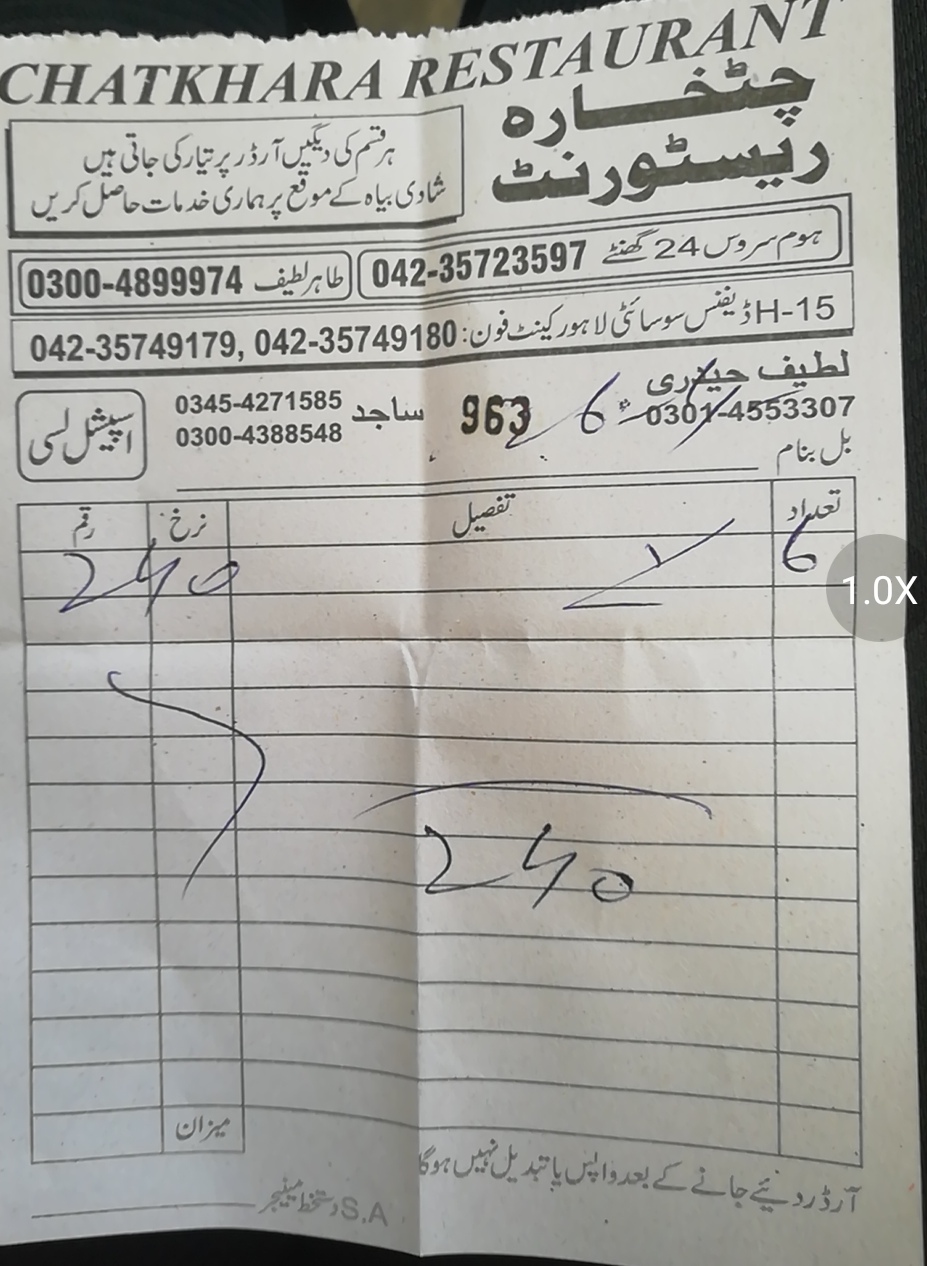 CHATKHARA RESTAURANT
چٹخارہ
ریسٹورنٹ
ہر قسم کی دیگیں آرڈر پر تیار کی جاتی ہیں
شادی بیاہ کے موقع پر ہماری خدمات حاصل کریں
ہوم سروس 24 گھنٹے 042-35723597
طاہر لطیف 0300-4899974
H-15 ڈیفنس سوسائٹی لاہور کینٹ فون: 042-35749180 ,042-35749179
لطیف حیدری
0301-4553307
963
ساجد 0345-4271585
0300-4388548
اسپیشل لسی
بل بنام
تعداد تفصیل نرخ رقم
6 240
240
میزان
آرڈر دیئے جانے کے بعد واپس یا تبدیل نہیں ہوگا
S.A دستخط مینیجر
1.0X